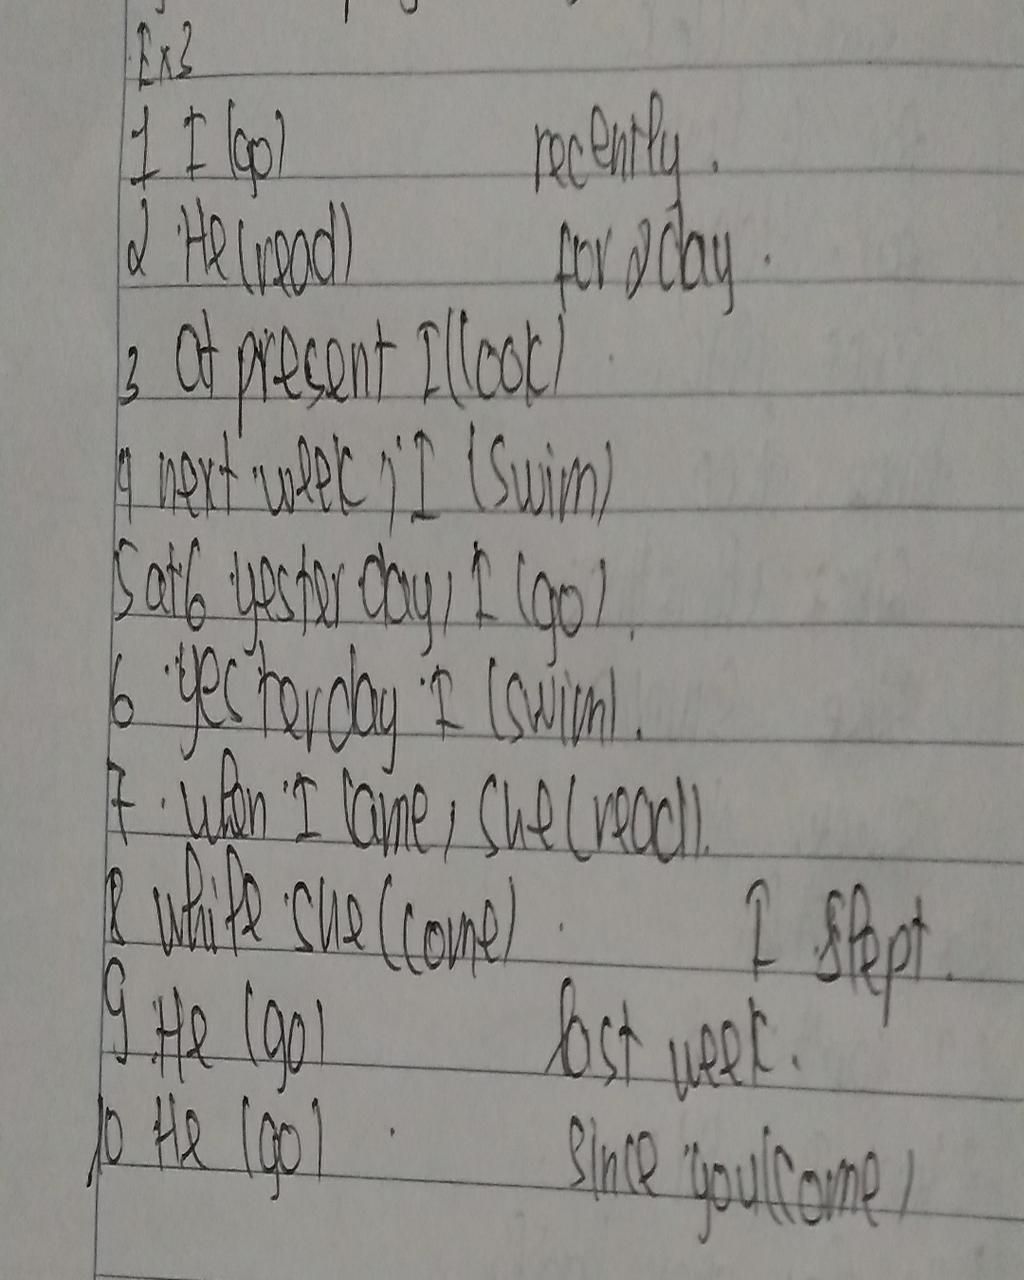 Ex3
1 I (go) recently.
2 He (read) for 2 day.
3 at present I (look)
4 next week, I (swim)
5 at 6 yester day, I (go).
6 yesterday I (swim).
7. when I came, she (read).
8 while she (come). I slept.
9 He (go) last week.
10 He (go). since you (come)